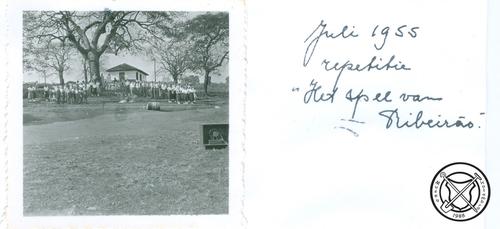 Juli 1955
repetitie
"Het spel van
Ribeirão."
1988